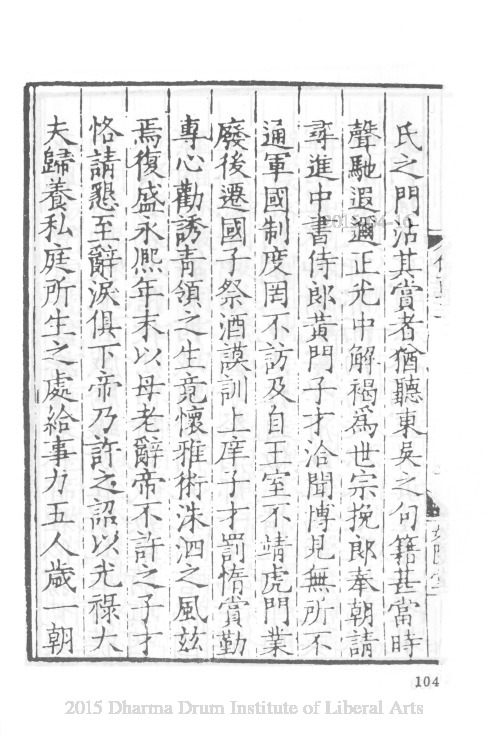 氏之門沾其賞者猶聽東吳之句籍甚當時
聲馳遐邇正光中解褐爲世宗挽郎奉朝請
尋進中書侍郎黃門子才洽聞博見無所不
通軍國制度罔不訪及自王室不靖虎門業
廢後遷國子祭酒謨訓上庠子才罰惰賞勤
專心勸誘青領之生竟懷雅術洙泗之風玆
焉復盛永熈年末以母老辭帝不許之子才
恪請懇至辭淚俱下帝乃許之詔以光祿大
夫歸養私庭所生之處給事力五人歲一朝
104
2015 Dharma Drum Institute of Liberal Arts